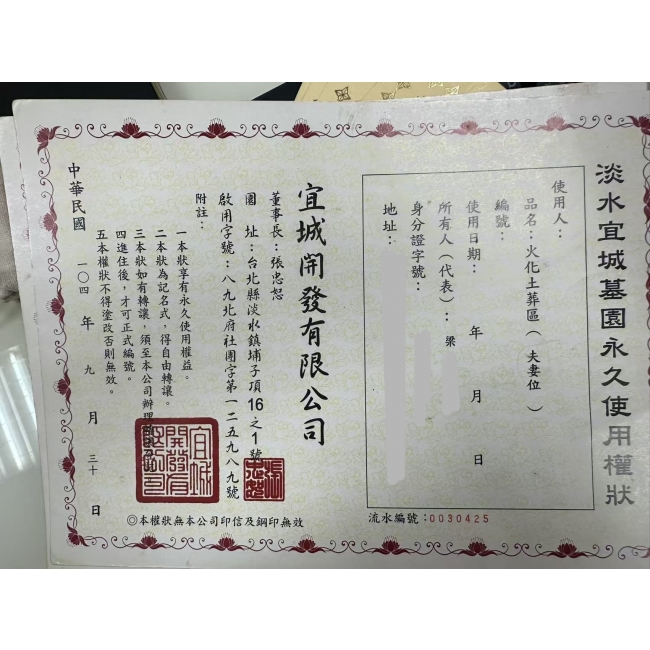 淡水宜城墓園永久使用權狀
使用人：
品名：火化土葬區（夫妻位）
編號：
使用日期：　年　月　日
所有人（代表）：梁
身分證字號：
地址：
流水編號：0030425
宜城開發有限公司
董事長：張忠恕
園　址：台北縣淡水鎮埔子頂16之1號
啟用字號：八九北府社團字第一二五九八九號
附註：
一本狀享有永久使用權益。
二本狀為記名式，得自由轉讓。
三本狀如有轉讓，須至本公司辦理
四進住後，才可正式編號。
五本權狀不得塗改否則無效。
中華民國　一〇四年　九　月　三十　日
宜城開發有限公司
◎本權狀無本公司印信及鋼印無效